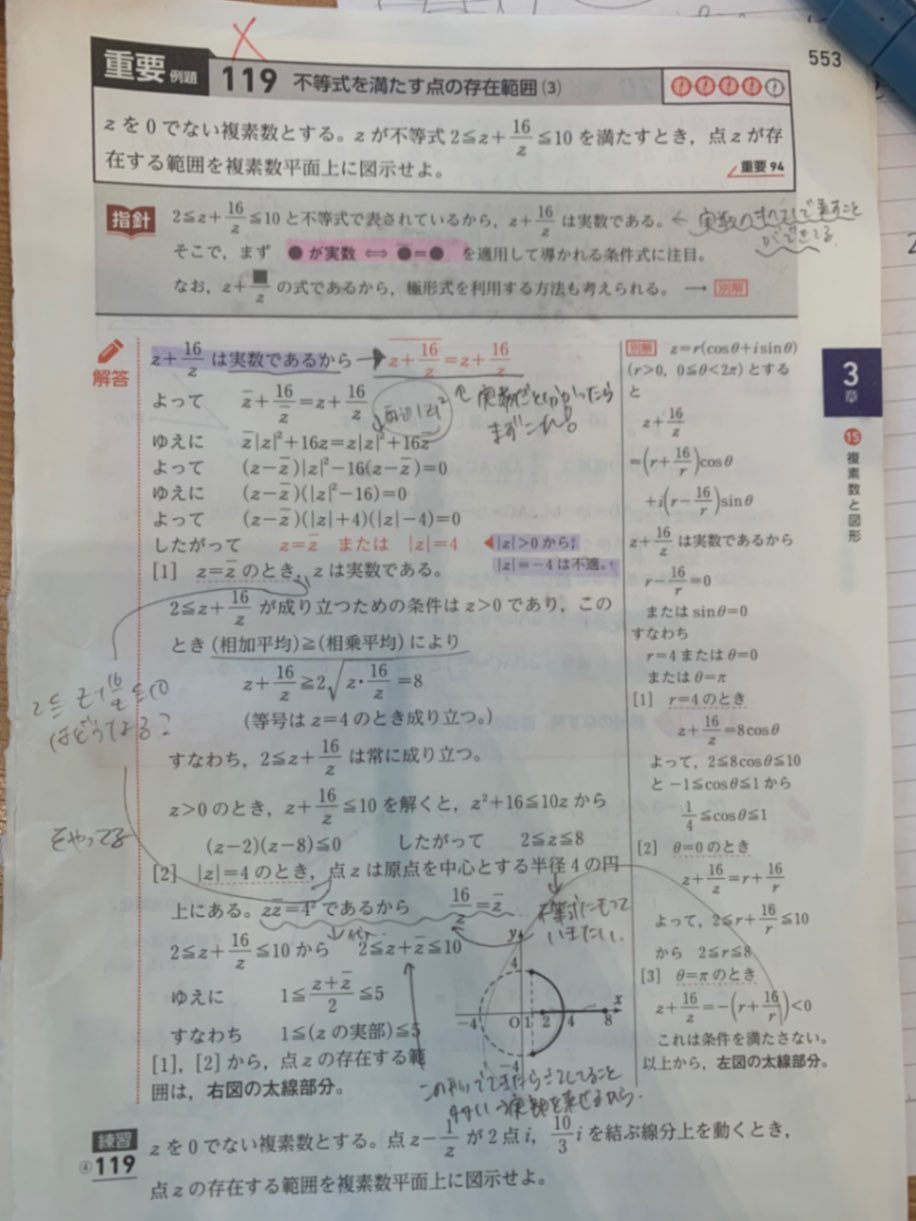 553
重要 例題 119 不等式を満たす点の存在範囲(3)
zを0でない複素数とする。zが不等式 2≦z+16/z≦10 を満たすとき，点zが存
在する範囲を複素数平面上に図示せよ。
重要 94
指針
2≦z+16/z≦10 と不等式で表されているから，z+16/z は実数である。
← 実数の
ができてる
そこで，まず ●が実数 ⟺ ●̄=● を適用して導かれる条件式に注目。
なお，z+■/z の式であるから，極形式を利用する方法も考えられる。 ⟶ 別解
解答
z+16/z は実数であるから
\overline{z+16/z}=z+16/z
よって z̄+16/z̄=z+16/z
両辺|z|²
実数だと分かったら
まずこれ。
ゆえに z̄|z|²+16z=z|z|²+16z̄
よって (z-z̄)|z|²-16(z-z̄)=0
ゆえに (z-z̄)(|z|²-16)=0
よって (z-z̄)(|z|+4)(|z|-4)=0
したがって z=z̄ または |z|=4
◀|z|>0から，
|z|=-4は不適。
[1] z=z̄ のとき，zは実数である。
2≦z+16/z が成り立つための条件は z>0 であり，この
とき (相加平均)≧(相乗平均) により
z+16/z≧2√(z・16/z)=8
(等号は z=4 のとき成り立つ。)
すなわち，2≦z+16/z は常に成り立つ。
z>0 のとき，z+16/z≦10 を解くと，z²+16≦10z から
(z-2)(z-8)≦0 したがって 2≦z≦8
2≦z+16/z≦10
はどうなる?
をやってる
[2] |z|=4 のとき，点zは原点を中心とする半径4の円
上にある。zz̄=4² であるから 16/z=z̄
不等式にもって
いきたい.
2≦z+16/z≦10 から 2≦z+z̄≦10
ゆえに 1≦(z+z̄)/2≦5
すなわち 1≦(zの実部)≦5
[1]，[2] から，点zの存在する範
囲は，右図の太線部分。
y
4
-4
O
1
2
4
8
x
-4
別解 z=r(cosθ+isinθ)
(r>0，0≦θ<2π) とする
と
z+16/z
=(r+16/r)cosθ
+i(r-16/r)sinθ
z+16/z は実数であるから
r-16/r=0
または sinθ=0
すなわち
r=4 または θ=0
または θ=π
[1] r=4 のとき
z+16/z=8cosθ
よって，2≦8cosθ≦10
と -1≦cosθ≦1 から
1/4≦cosθ≦1
[2] θ=0 のとき
z+16/z=r+16/r
よって，2≦r+16/r≦10
から 2≦r≦8
[3] θ=π のとき
z+16/z=-(r+16/r)<0
これは条件を満たさない。
以上から，左図の太線部分。
3
章
15
複素数と図形
練習
④119
zを0でない複素数とする。点 z-1/z が2点 i，10/3 i を結ぶ線分上を動くとき，
点zの存在する範囲を複素数平面上に図示せよ。